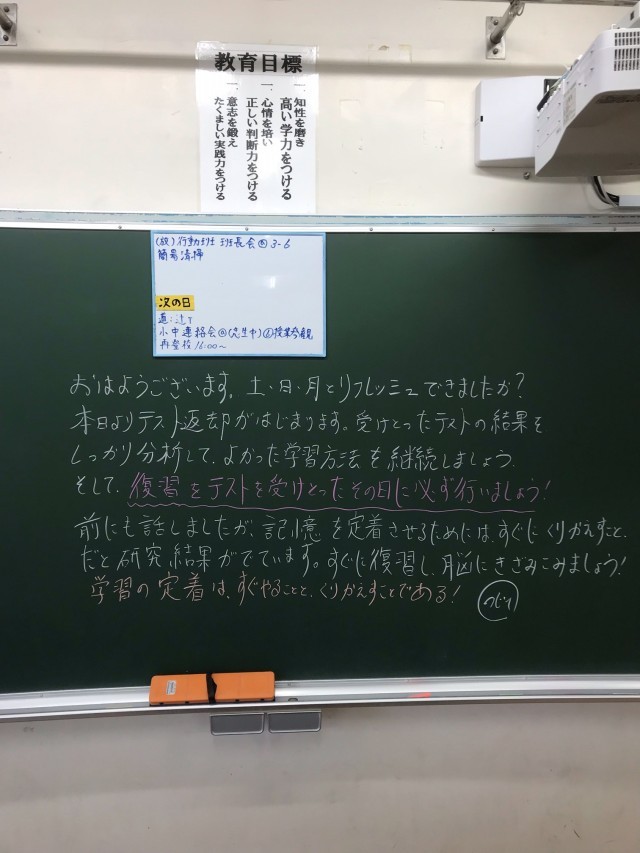 教育目標
一、知性を磨き
高い学力をつける
一、心情を培い
正しい判断力をつける
一、意志を鍛え
たくましい実践力をつける
(放)行動班 班長会 3-6
簡易清掃
次の日
小中連絡会 授業参観
再登校 16:00～
おはようございます。土・日・月とリフレッシュできましたか?
本日よりテスト返却がはじまります。受けとったテストの結果を
しっかり分析して、よかった学習方法を継続しましょう。
そして、復習をテストを受けとったその日に必ず行いましょう!
前にも話しましたが、記憶を定着させるためには、すぐにくりかえすこと、
だと研究結果がでています。すぐに復習し、脳にきざみこみましょう!
学習の定着は、すぐやることと、くりかえすことである!